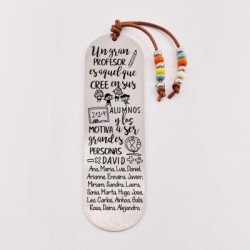 Un gran
PROFESOR
es aquel que
CREE en sus
ALUMNOS
y los
MOTIVA a SER
grandes
PERSONAS
DAVID
Ana, Maria, Luis, Daniel,
Arianne, Enneira, Javier,
Miriam, Sandra, Laura,
Sonia, Marta, Hugo, Jose,
Leo, Carlos, Ainhoa, Gala,
Rosa, Deira, Alejandra,